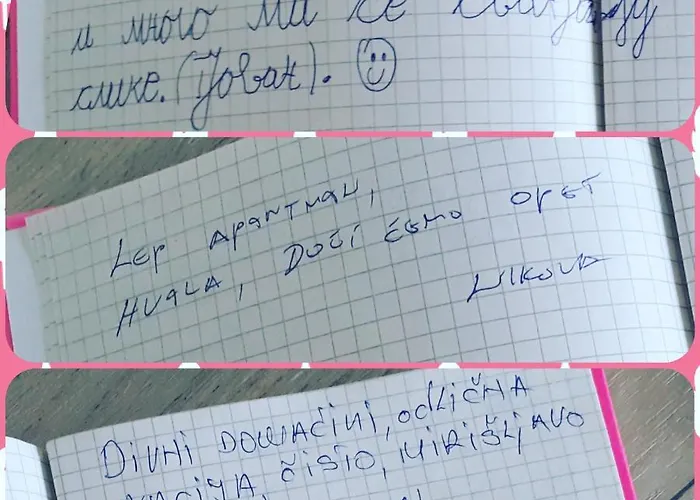 и много ми се свиђају
слике. (Јован). ☺
LEP APARTMAN,
HVALA, DOĆI ĆEMO OPET
NIKOLA
DIVNI DOMAĆINI, ODLIČNA
ČISTO, MIRIŠLJAVO